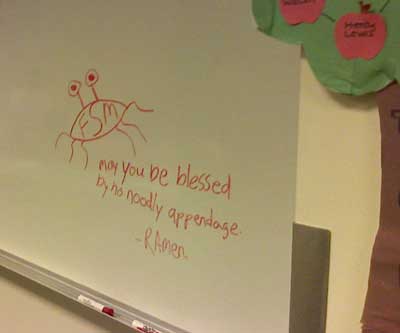 FSM
may you be blessed
by his noodly appendage.
-RAmen.